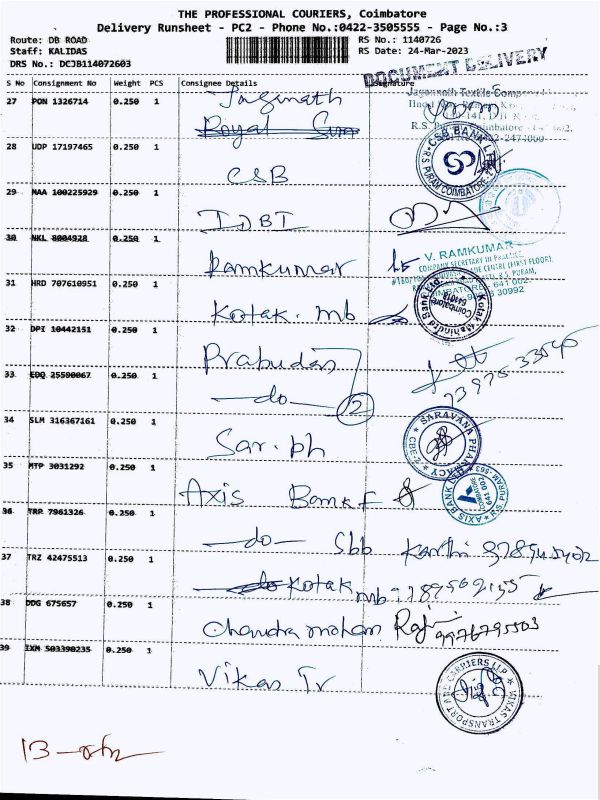 THE PROFESSIONAL COURIERS, Coimbatore
Delivery Runsheet - PC2 - Phone No.:0422-3505555 - Page No.:3
Route: DB ROAD RS No.: 1140726
Staff: KALIDAS RS Date: 24-Mar-2023
DRS No.: DCJB114072603
DOCUMENT DELIVERY
S No Consignment No Weight PCS Consignee Details Signature
27 PON 1326714 0.250 1 Jaginath
Royal Sun
Jagannath Textile Company
28 UDP 17197465 0.250 1 CSB
CSB BANK LTD
R.S. PURAM COIMBATORE
29 MAA 100225929 0.250 1 IDBI
30 NKL 8004928 0.250 1 Ramkumar
V. RAMKUMAR
COMPANY SECRETARY IN PRACTICE,
CENTRE (FIRST FLOOR),
R.S. PURAM,
COIMBATORE - 641 002.
30992
31 HRD 707610951 0.250 1 Kotak. mb
Kotak Mahindra Bank Ltd
Coimbatore
32 DPI 10442151 0.250 1 Prabudas
33 EDQ 25590067 0.250 1 -do- 2
34 SLM 316367161 0.250 1 Sar. ph
SARAVANA PHARMACY
CBE-2
35 MTP 3031292 0.250 1 Axis Bank F
AXIS BANK LTD
R.S. PURAM
36 TRP 7961326 0.250 1 -do- Sbb Karthi
37 TRZ 42475513 0.250 1 do Kotak mb
38 DDG 675657 0.250 1 Chandra mohan Raji 9976795503
39 IXM 503390235 0.250 1 Vikas Tr
VIKAS TRANSPORT AND CARRIERS LLP
13